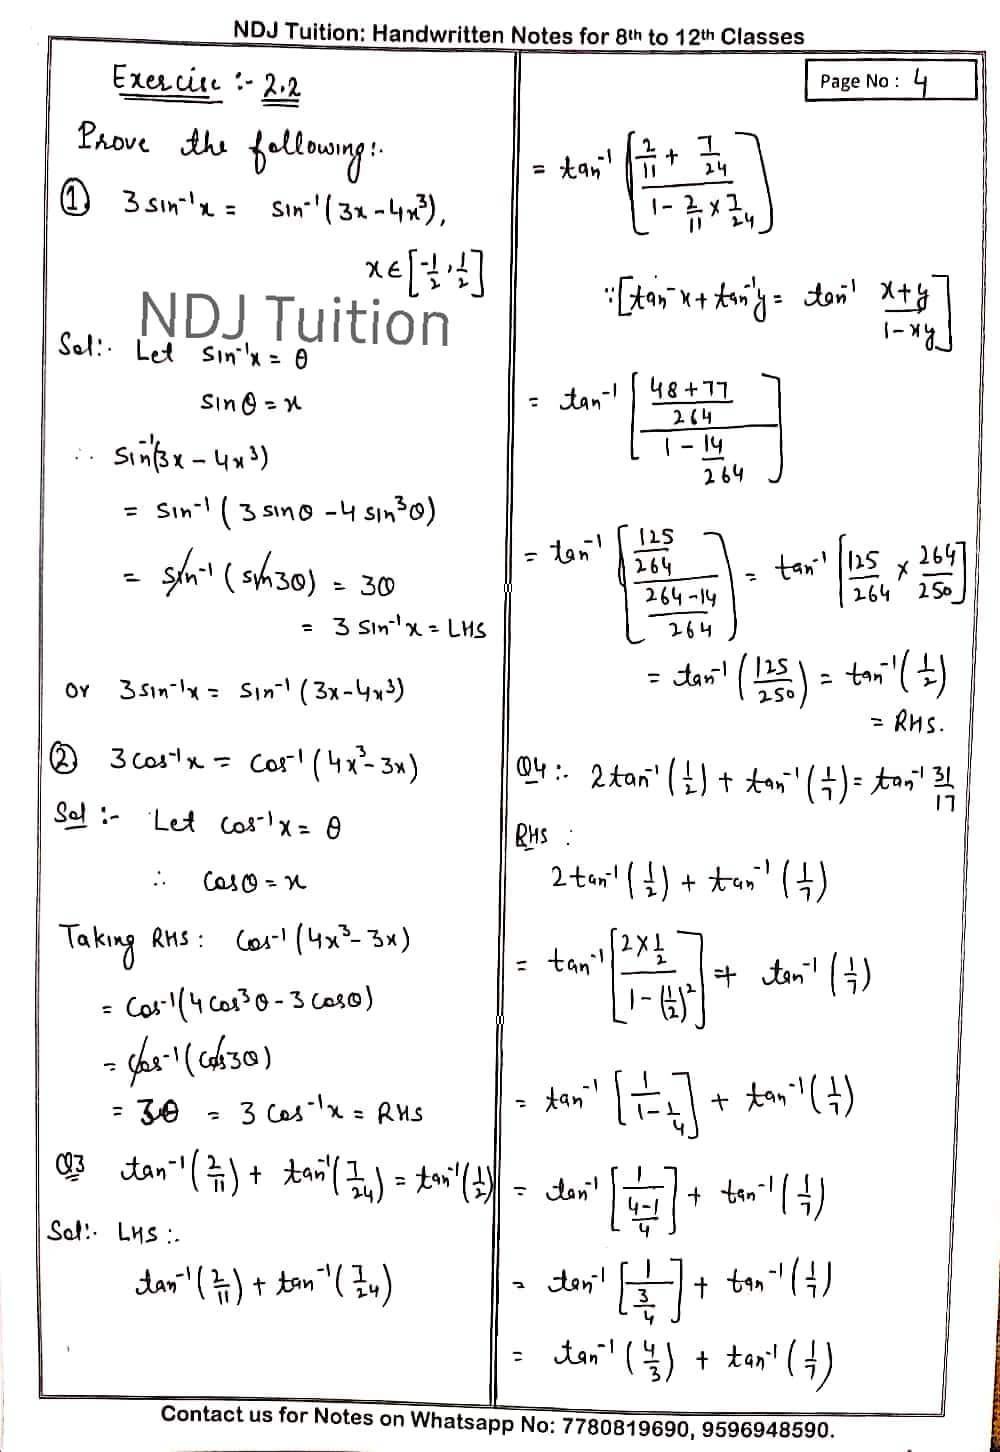 NDJ Tuition: Handwritten Notes for 8th to 12th Classes
Exercise :- 2.2
Prove the following:-
① 3 sin⁻¹x = sin⁻¹(3x - 4x³),
x ∈ [-1/2, 1/2]
NDJ Tuition
Sol:- Let sin⁻¹x = θ
sinθ = x
∴ sin⁻¹(3x - 4x³)
= sin⁻¹(3 sinθ - 4 sin³θ)
= sin⁻¹(sin3θ) = 3θ
= 3 sin⁻¹x = LHS
or 3sin⁻¹x = sin⁻¹(3x-4x³)
② 3cos⁻¹x = cos⁻¹(4x³-3x)
Sol :- Let cos⁻¹x = θ
∴ cosθ = x
Taking RHS : cos⁻¹(4x³-3x)
= cos⁻¹(4cos³θ - 3cosθ)
= cos⁻¹(cos3θ)
= 3θ = 3 cos⁻¹x = RHS
Q3 tan⁻¹(2/11) + tan⁻¹(7/24) = tan⁻¹(1/2)
Sol:- LHS :-
tan⁻¹(2/11) + tan⁻¹(7/24)
Page No : 4
= tan⁻¹[(2/11 + 7/24)/(1 - 2/11 × 7/24)]
∵[tan⁻¹x + tan⁻¹y = tan⁻¹ (x+y)/(1-xy)]
= tan⁻¹[((48+77)/264)/(1 - 14/264)]
= tan⁻¹[(125/264)/((264-14)/264)] = tan⁻¹[125/264 × 264/250]
= tan⁻¹(125/250) = tan⁻¹(1/2)
= RHS.
Q4:- 2tan⁻¹(1/2) + tan⁻¹(1/7) = tan⁻¹ 31/17
RHS :
2tan⁻¹(1/2) + tan⁻¹(1/7)
= tan⁻¹[(2×1/2)/(1-(1/2)²)] + tan⁻¹(1/7)
= tan⁻¹[1/(1-1/4)] + tan⁻¹(1/7)
= tan⁻¹[1/((4-1)/4)] + tan⁻¹(1/7)
= tan⁻¹[1/(3/4)] + tan⁻¹(1/7)
= tan⁻¹(4/3) + tan⁻¹(1/7)
Contact us for Notes on Whatsapp No: 7780819690, 9596948590.